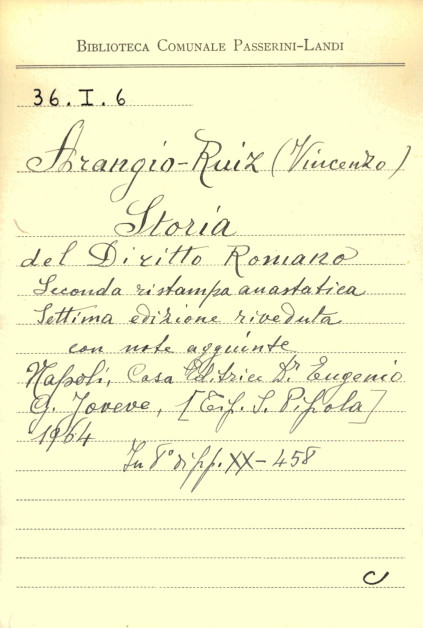 BIBLIOTECA COMUNALE PASSERINI-LANDI
36.I.6
Arangio-Ruiz (Vincenzo)
Storia
del Diritto Romano
Seconda ristampa anastatica
Settima edizione riveduta
con note aggiunte
Napoli, Casa Editrice Dr Eugenio
G. Jovene, [Tip. S. Pipola]
1964
In 8° di pp. XX-458
C